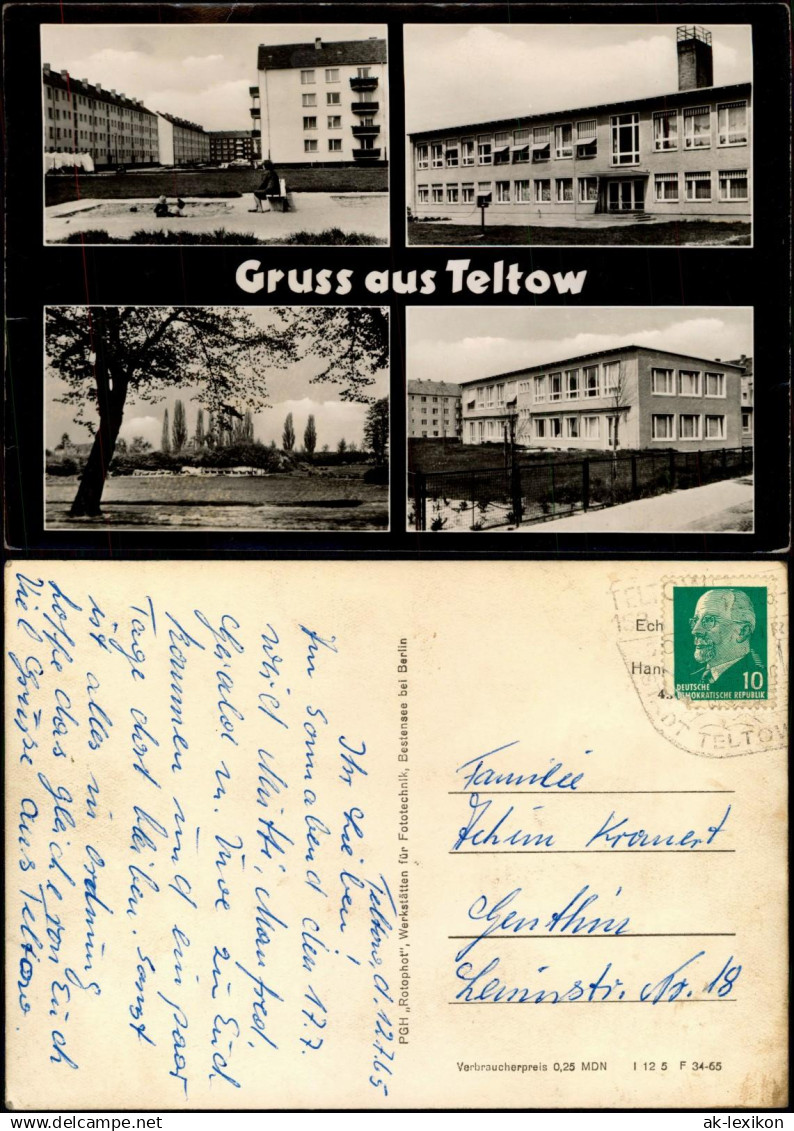 Gruss aus Teltow
Teltow, d. 12.7.65
Ihr Lieben!
Am Sonnabend den 17.7.
wird Mutti, Manfred,
u. Uwe zu Euch
kommen und ein paar
Tage dort bleiben. Sonst
ist alles in Ordnung
hoffe das gleiche von Euch
Viel Grüsse aus Teltow.
PGH „Rotophot", Werkstätten für Fototechnik, Bestensee bei Berlin
TELTOW
Ech
Han
DEUTSCHE
DEMOKRATISCHE REPUBLIK
10
TELTOW
Familie
Achim Kranert
Genthin
Leninstr. Nr. 18
Verbraucherpreis 0,25 MDN I 12 5 F 34-65
ak-lexikon.com